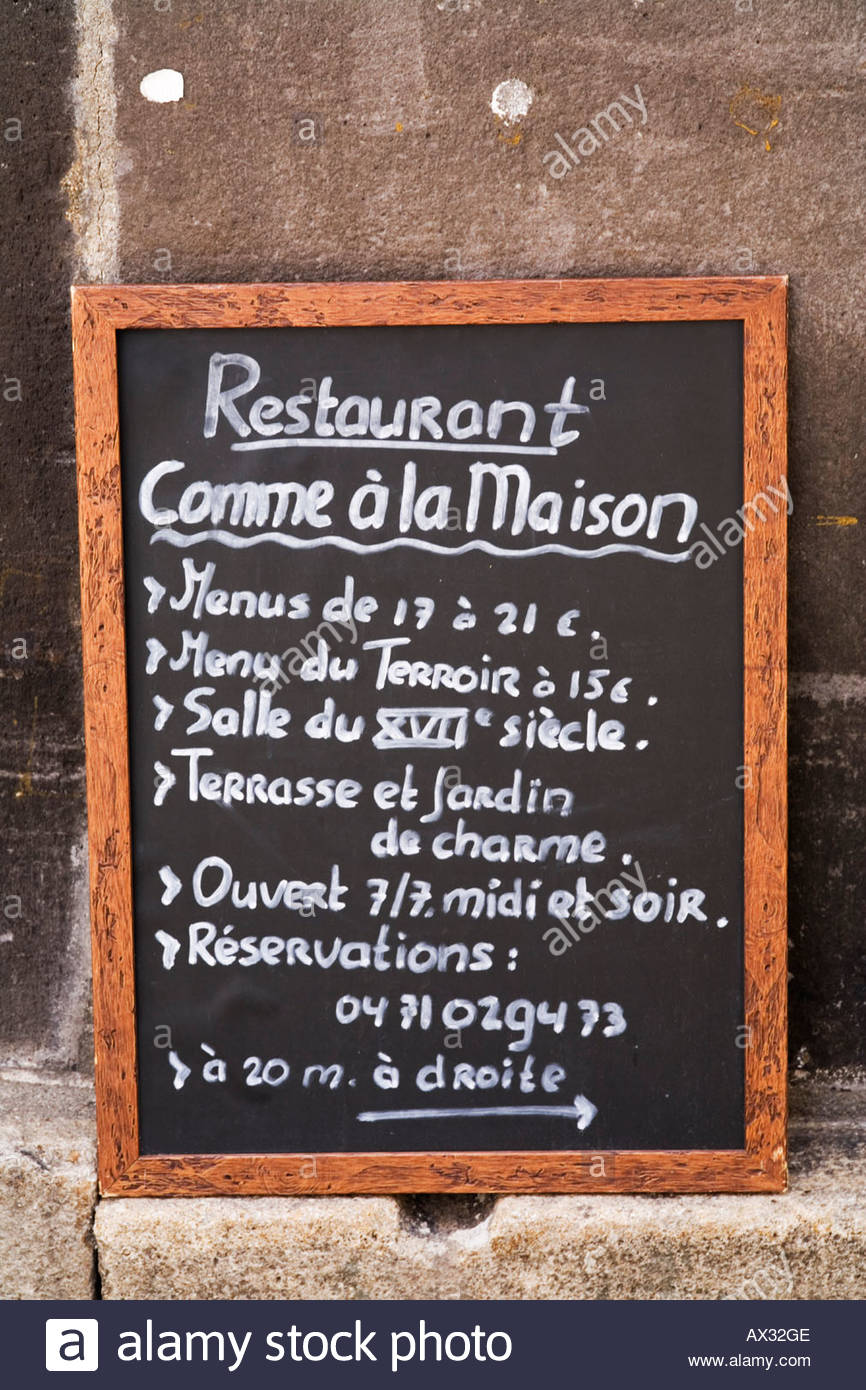 Restaurant
Comme à la Maison
> Menus de 17 à 21 €.
> Menu du Terroir à 15€.
> Salle du XVIIe siècle.
> Terrasse et Jardin
de charme.
> Ouvert 7/7. midi et soir.
> Réservations :
04 71 02 94 73
> à 20 m. à droite
alamy
alamy
alamy
alamy
alamy
a alamy stock photo
AX32GE
www.alamy.com